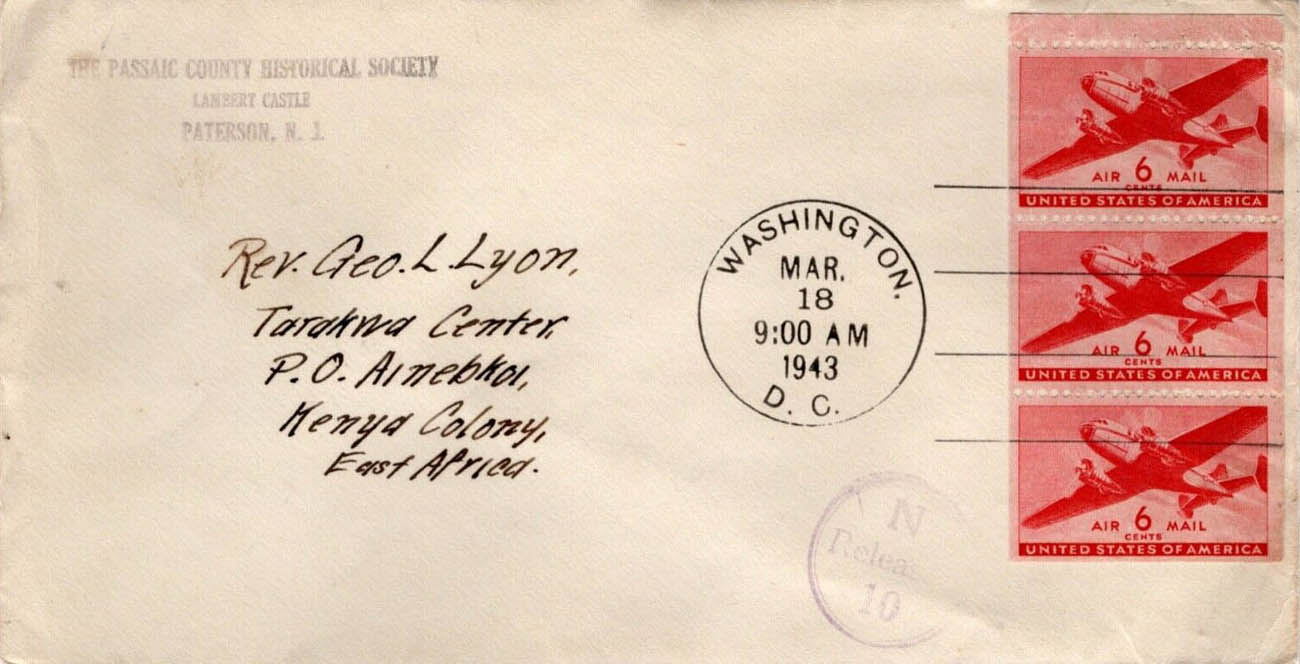 THE PASSAIC COUNTY HISTORICAL SOCIETY
LAMBERT CASTLE
PATERSON, N. J.
Rev. Geo. L. Lyon,
Tarakwa Center,
P.O. Ainebkoi,
Kenya Colony,
East Africa.
WASHINGTON.
MAR.
18
9:00 AM
1943
D. C.
AIR 6 MAIL
CENTS
UNITED STATES OF AMERICA
AIR 6 MAIL
CENTS
UNITED STATES OF AMERICA
AIR 6 MAIL
CENTS
UNITED STATES OF AMERICA
N
10